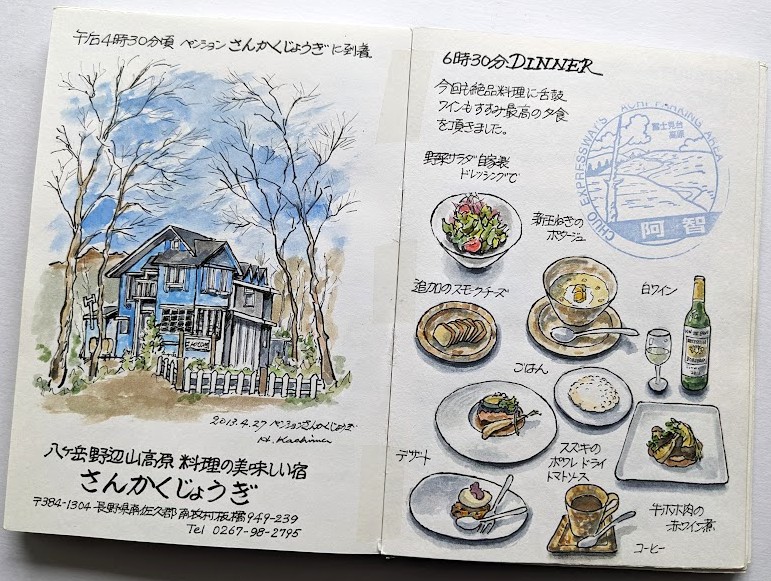 午后4時30分頃 ペンション さんかくじょうぎ に到着
2013.4.27 ペンションさんかくじょうぎ
H. Kashima
八ヶ岳野辺山高原 料理の美味しい宿
さんかくじょうぎ
〒384-1304 長野県南佐久郡南牧村板橋949-239
Tel 0267-98-2795
6時30分 DINNER
今回も絶品料理に舌鼓
ワインもすすみ最高の夕食
を頂きました。
CHUO EXPRESSWAY ACHI PARKING AREA
富士見台
高原
阿智
野菜サラダ自家製
ドレッシングで
新玉ねぎの
ポタージュ
追加のスモークチーズ
白ワイン
ごはん
スズキの
ポワレ ドライ
トマトソース
デザート
牛ホホ肉の
赤ワイン煮
コーヒー